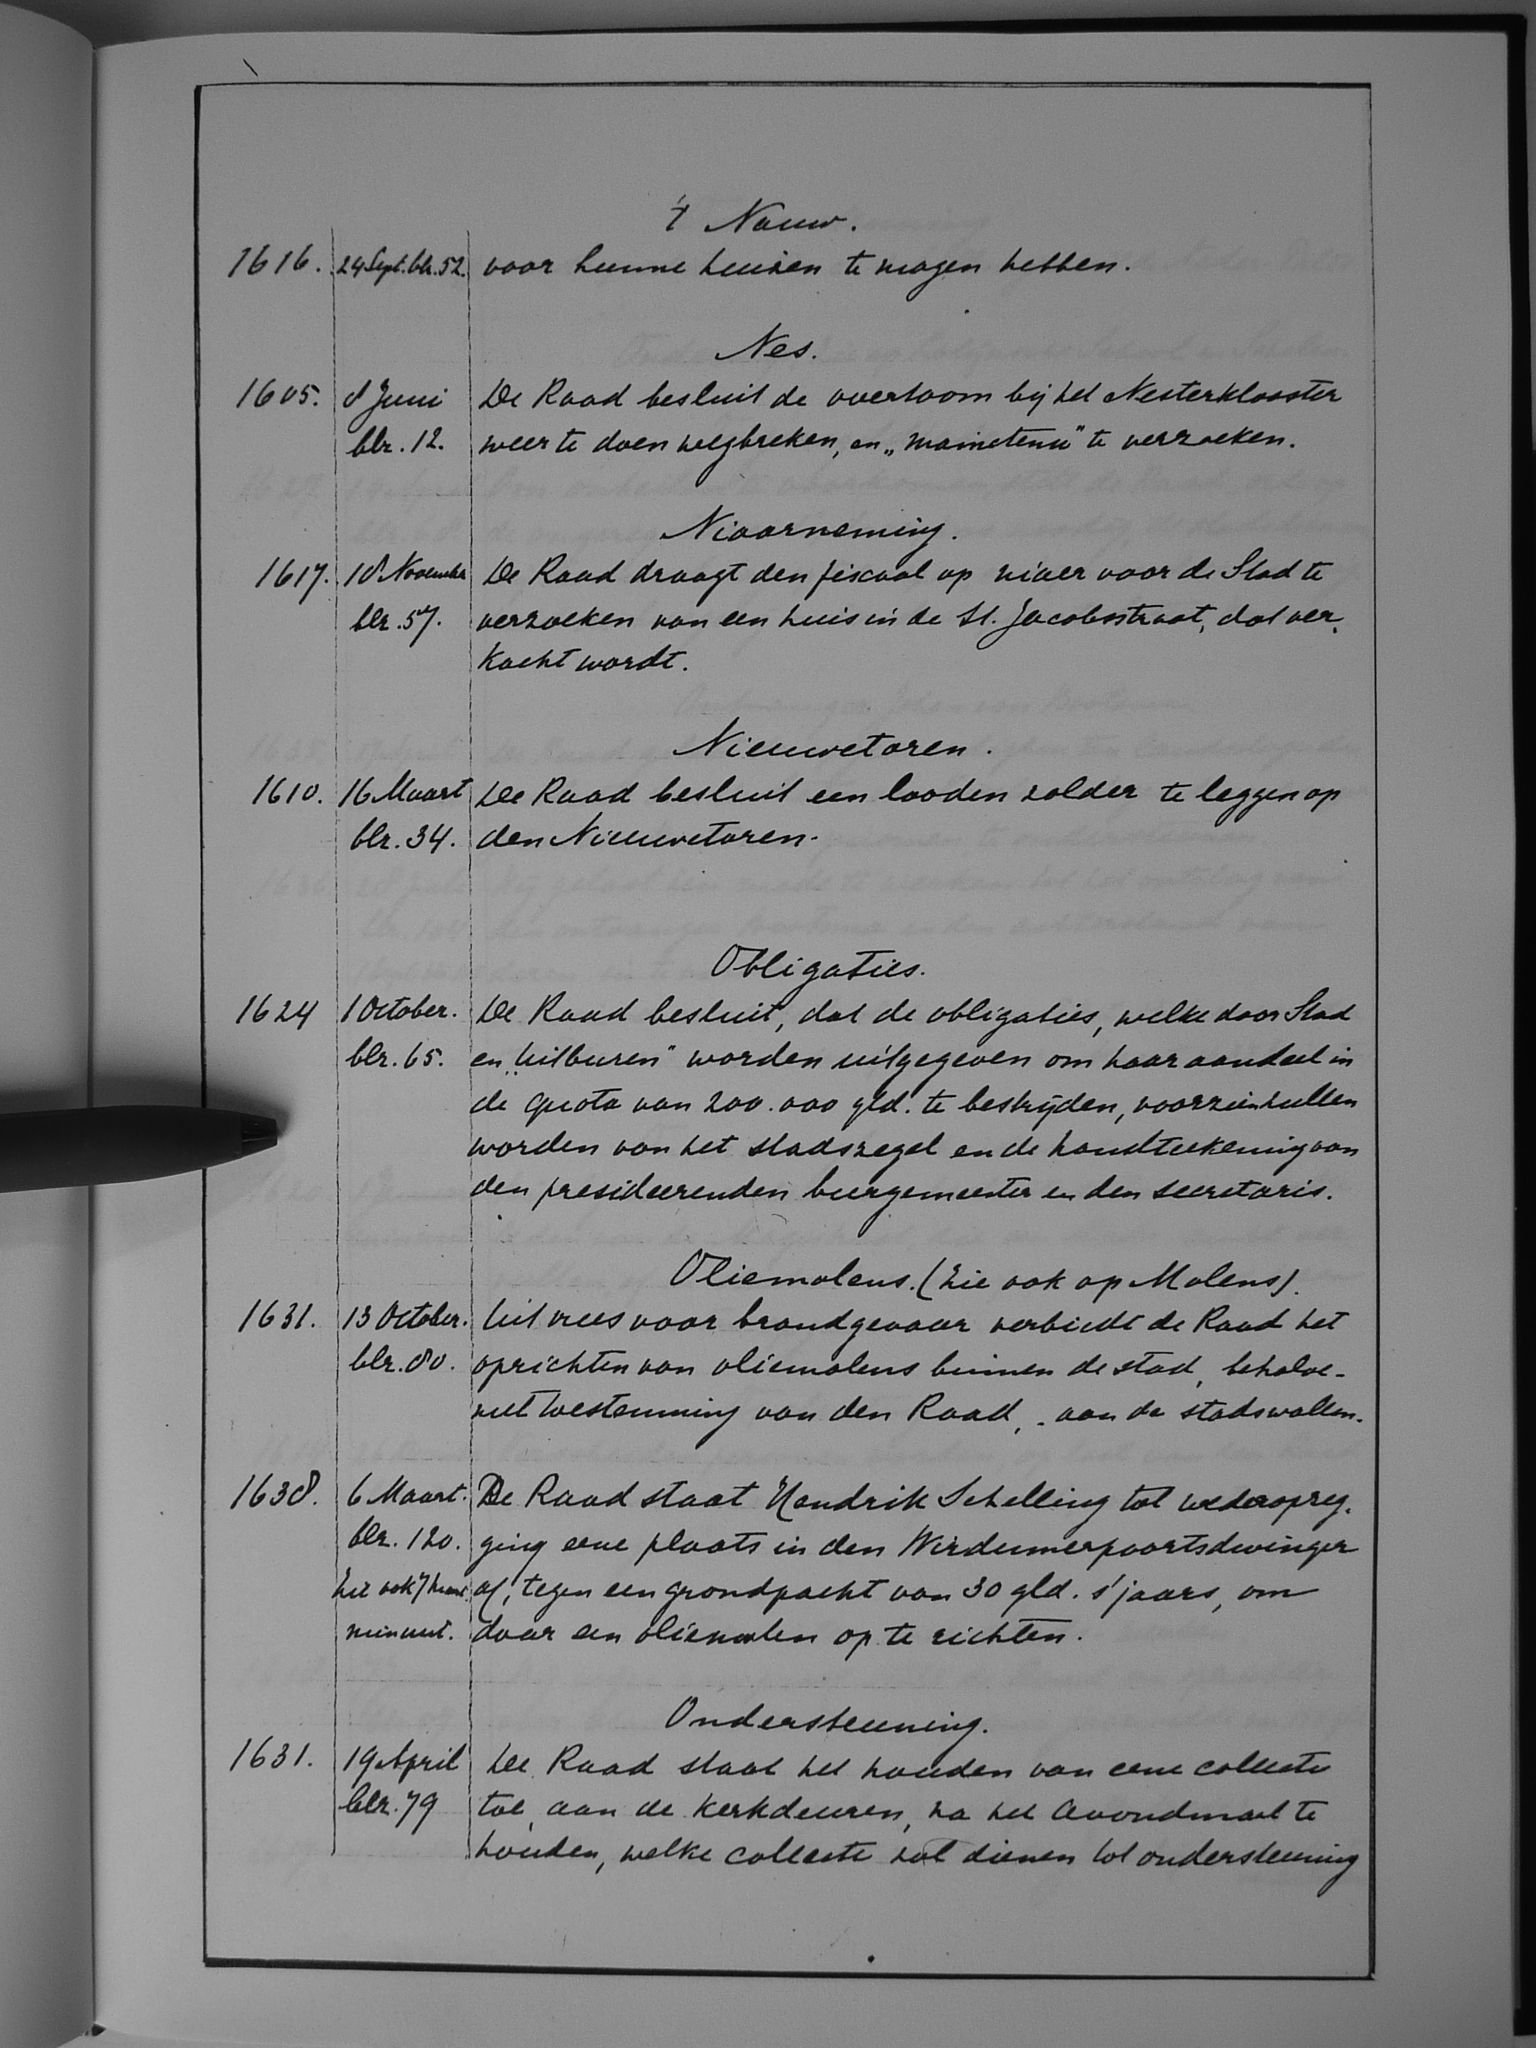 't Nauw.
1616. 24 Sept. blz. 52. voor hunne huizen te mogen hebben.
Nes.
1605. 8 Juni De Raad besluit de overtoom bij het Nesterklooster
blz. 12. weer te doen wegbreken, en „mainetenu" te verzoeken.
Niaarneming.
1617. 18 November De Raad draagt den fiscaal op niaer voor de Stad te
blz. 57. verzoeken van een huis in de St. Jacobsstraat, dat ver-
kocht wordt.
Nieuwetoren.
1610. 16 Maart De Raad besluit een looden zolder te leggen op
blz. 34. den Nieuwetoren.
Obligaties.
1624 1 October. De Raad besluit, dat de obligaties, welke door Stad
blz. 65. en „Uitburen" worden uitgegeven om haar aandeel in
de quota van 200.000 gld. te bestrijden, voorzien zullen
worden van het stadszegel en de handteekening van
den presideerenden burgemeester en den secretaris.
Oliemolens. (Zie ook op Molens).
1631. 13 October. Uit vrees voor brandgevaar verbiedt de Raad het
blz. 80. oprichten van oliemolens binnen de stad, behalve-
met toestemming van den Raad, - aan de stadswallen.
1638. 6 Maart. De Raad staat Hendrik Schelling tot wederopzeg-
blz. 120. ging eene plaats in den Wirdumerpoortsdwinger
Zie ook af, tegen een grondpacht van 30 gld. s'jaars, om
minuut. daar een oliemolen op te richten.
Ondersteuning.
1631. 19 April De Raad staat het houden van eene collecte
blz. 79 toe, aan de kerkdeuren, na het Avondmaal te
houden, welke collecte zal dienen tot ondersteuning